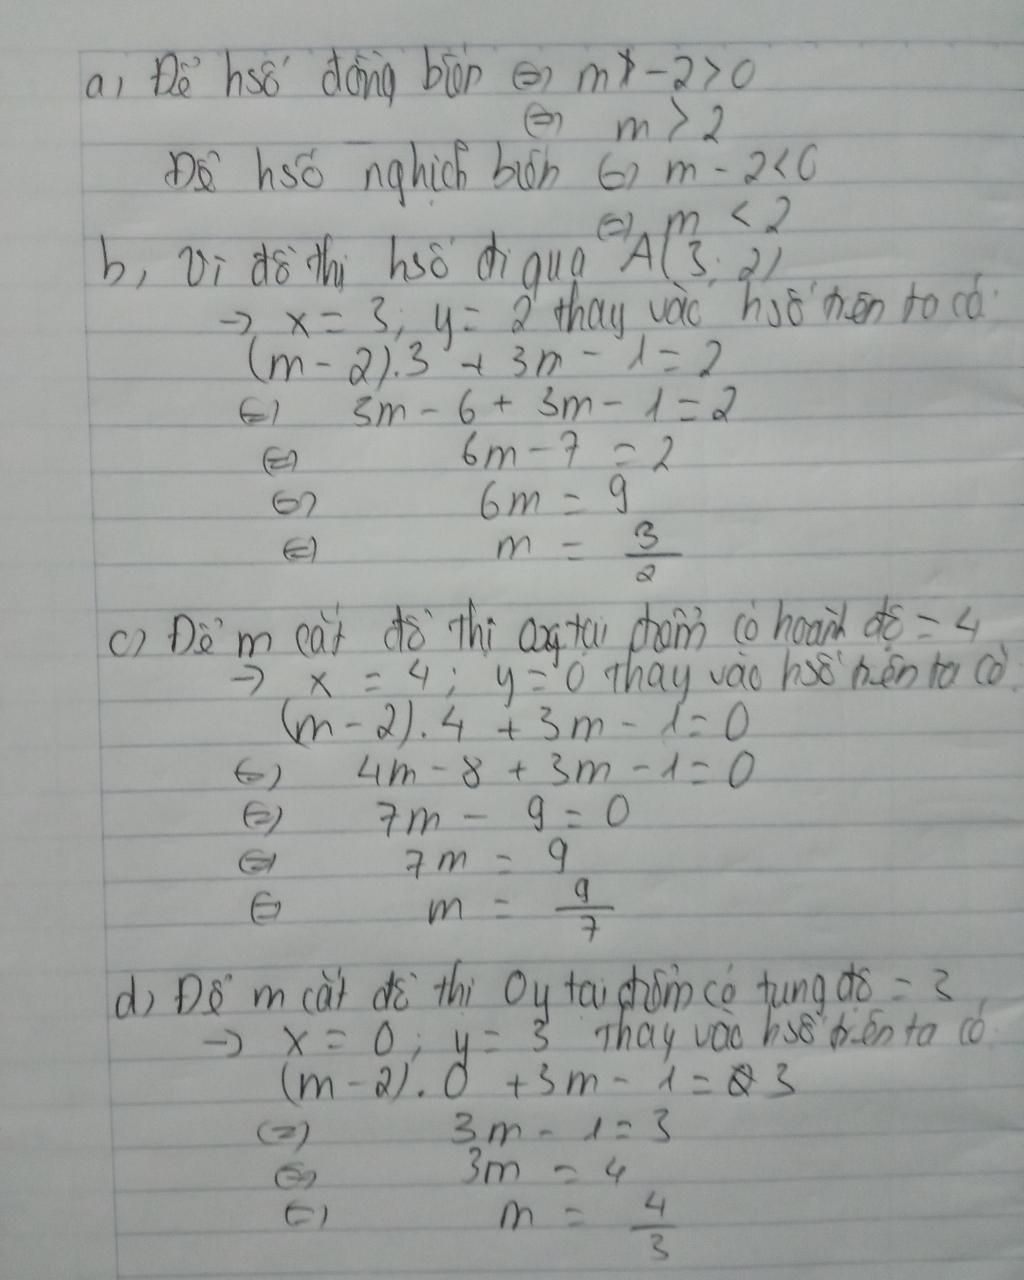 a, Để hsố đồng biến ⇔ m - 2 > 0
⇔ m > 2
Để hsố nghịch biến ⇔ m - 2 < 0
⇔ m < 2
b, Vì đồ thị hsố đi qua A(3; 2)
→ x = 3; y = 2 thay vào hsố trên ta có
(m - 2).3 + 3m - 1 = 2
⇔ 3m - 6 + 3m - 1 = 2
⇔ 6m - 7 = 2
⇔ 6m = 9
⇔ m = 3/2
c, Để m cắt đồ thị tại điểm có hoành độ = 4
→ x = 4; y = 0 thay vào hsố trên ta có
(m - 2).4 + 3m - 1 = 0
⇔ 4m - 8 + 3m - 1 = 0
⇔ 7m - 9 = 0
⇔ 7m = 9
⇔ m = 9/7
d, Để m cắt đồ thị Oy tại điểm có tung độ = 3
→ x = 0; y = 3 thay vào hsố trên ta có
(m - 2).0 + 3m - 1 = 3
⇔ 3m - 1 = 3
⇔ 3m = 4
⇔ m = 4/3